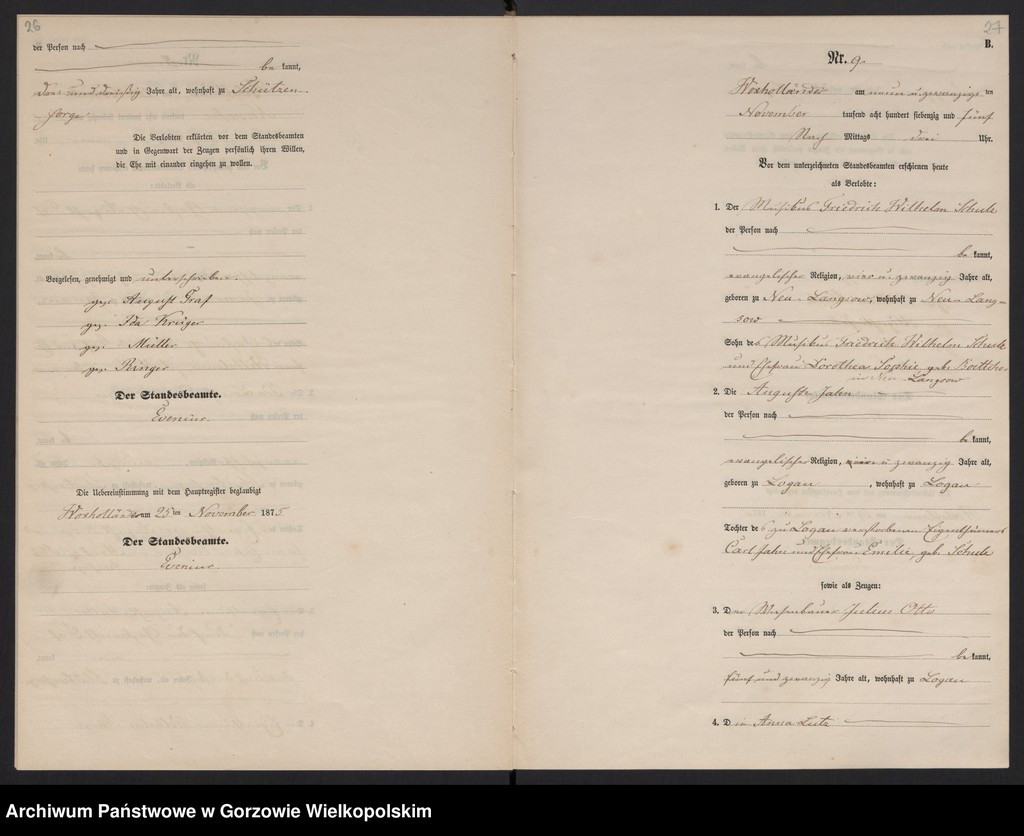 26
der Person nach
be kannt,
drei und dreißig Jahre alt, wohnhaft zu Schützen-
sorge.
Die Verlobten erklärten vor dem Standesbeamten
und in Gegenwart der Zeugen persönlich ihren Willen,
die Ehe mit einander eingehen zu wollen.
Vorgelesen, genehmigt und unterschrieben.
gez. August Graf
gez. Ida Krüger
gez. Müller
gez. Ringer
Der Standesbeamte.
Evenius.
Die Uebereinstimmung mit dem Hauptregister beglaubigt
Woxholländer am 25ten November 1875
Der Standesbeamte.
Evenius
27
B.
Nr. 9.
Woxholländer am neun u. zwanzigs ten
November tausend acht hundert siebenzig und fünf
Nach Mittags drei Uhr.
Vor dem unterzeichneten Standesbeamten erschienen heute
als Verlobte:
1. Der Musikus Friedrich Wilhelm Schulz
der Person nach
be kannt,
evangelischer Religion, vier u. zwanzig Jahre alt,
geboren zu Neu-Langsow, wohnhaft zu Neu-Lang-
sow
Sohn des Musikus Friedrich Wilhelm Schulz
und Ehefrau Dorothea Sophie, geb.
in Neu Langsow
2. Die Auguste Jahn
der Person nach
be kannt,
evangelischer Religion, u. zwanzig Jahre alt,
geboren zu Logau, wohnhaft zu Logau
Tochter des zu Logau verstorbenen Eigenthümers
Carl Jahn und Ehefrau Emilie, geb. Schulz
sowie als Zeugen:
3. Der Julius Otto
der Person nach
be kannt,
fünf und zwanzig Jahre alt, wohnhaft zu Logau
4. D ie Anna Lutz
Archiwum Państwowe w Gorzowie Wielkopolskim